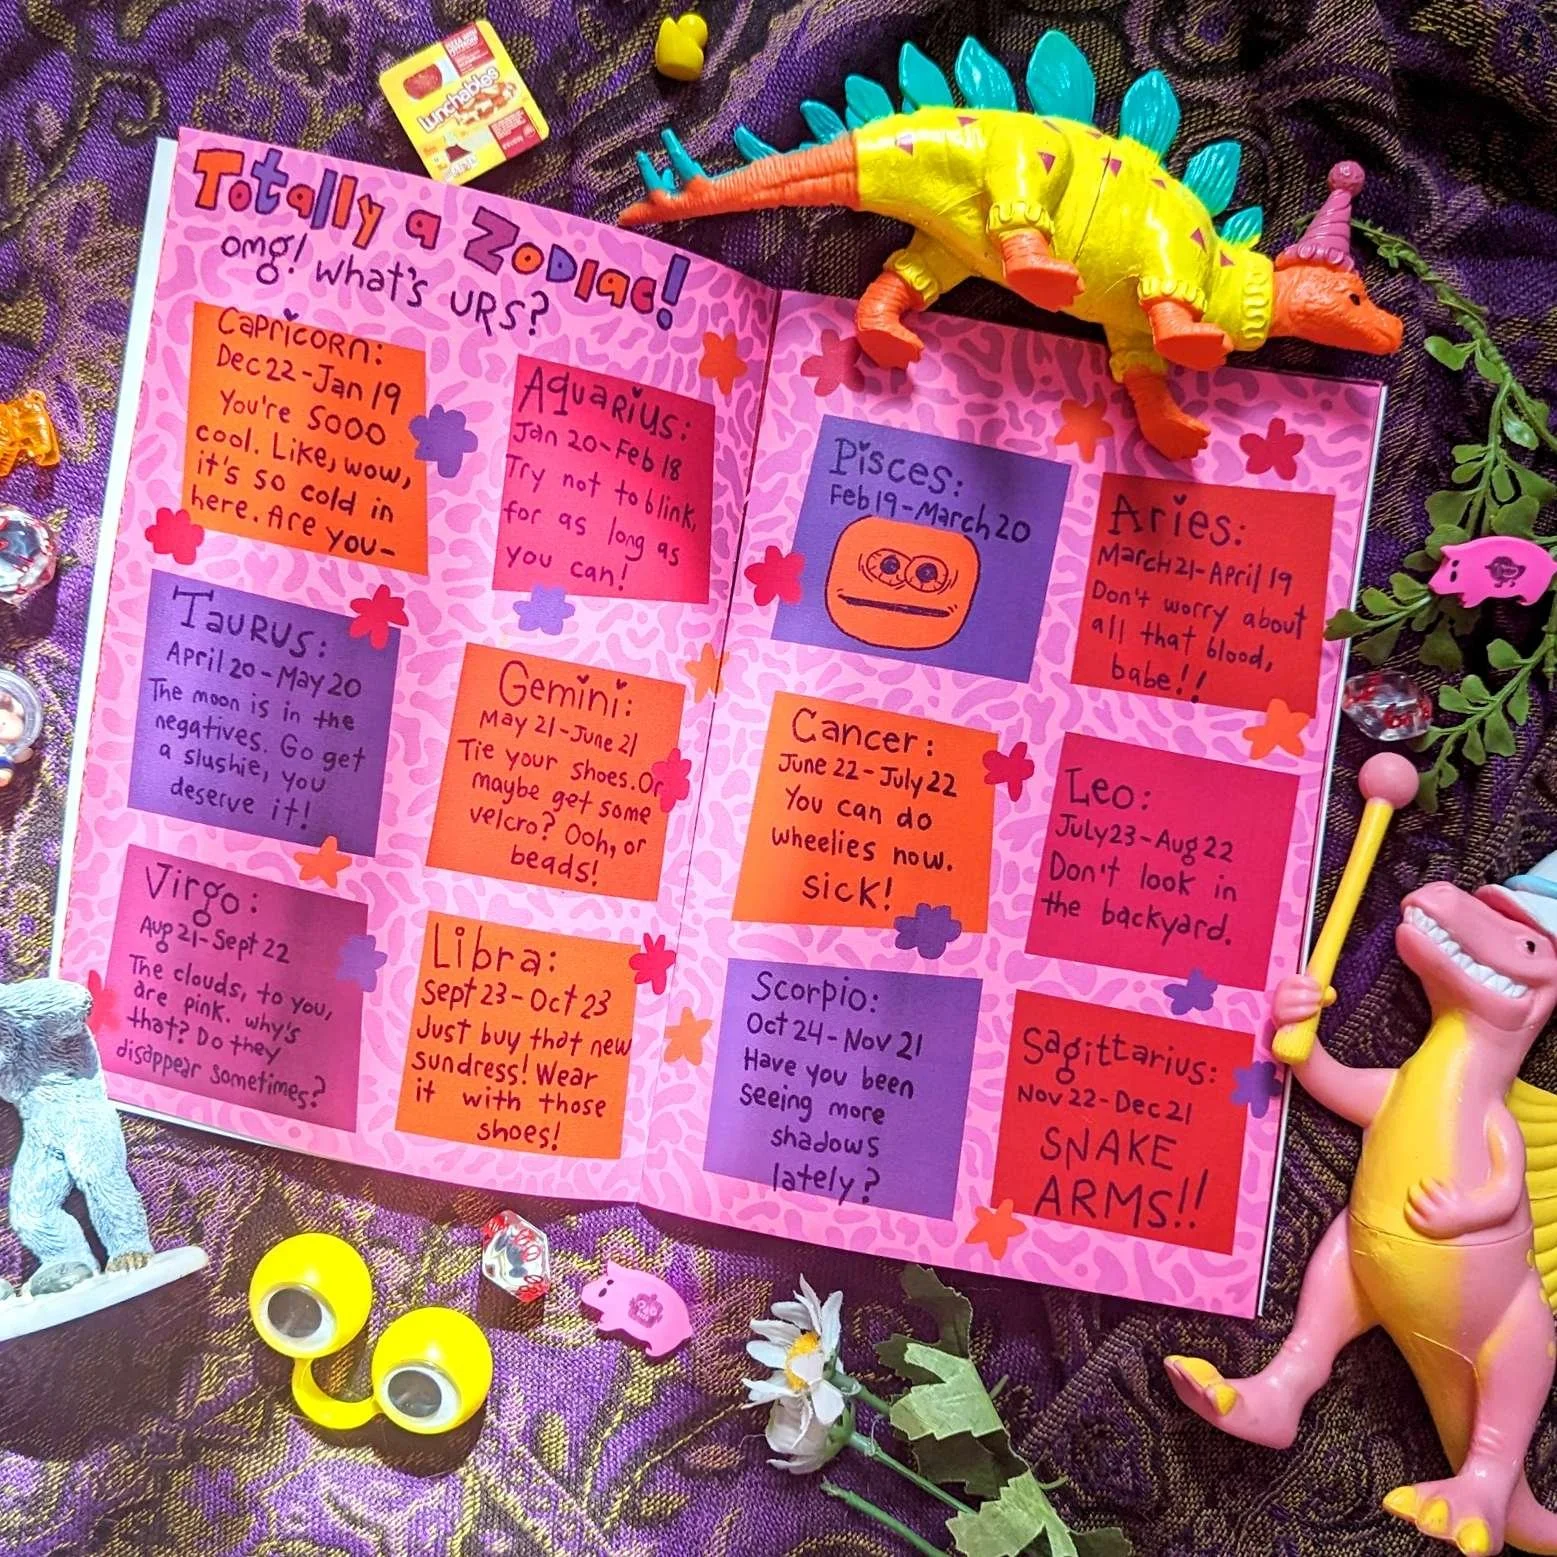 Lunchables
Totally a Zodiac!
omg! What's URS?
Capricorn:
Dec 22 - Jan 19
You're sooo
cool. Like, wow,
it's so cold in
here. Are you-
Aquarius:
Jan 20 - Feb 18
Try not to blink,
for as long as
you can!
Taurus:
April 20 - May 20
The moon is in the
negatives. Go get
a slushie, you
deserve it!
Gemini:
May 21 - June 21
Tie your shoes. Or
maybe get some
velcro? Ooh, or
beads!
Virgo:
Aug 21 - Sept 22
The clouds, to you,
are pink. Why's
that? Do they
disappear sometimes?
Libra:
Sept 23 - Oct 23
Just buy that new
sundress! Wear
it with those
shoes!
Pisces:
Feb 19 - March 20
Aries:
March 21 - April 19
Don't worry about
all that blood,
babe!!
Cancer:
June 22 - July 22
You can do
wheelies now.
sick!
Leo:
July 23 - Aug 22
Don't look in
the backyard.
Scorpio:
Oct 24 - Nov 21
Have you been
seeing more
shadows
lately?
Sagittarius:
Nov 22 - Dec 21
SNAKE
ARMS!!